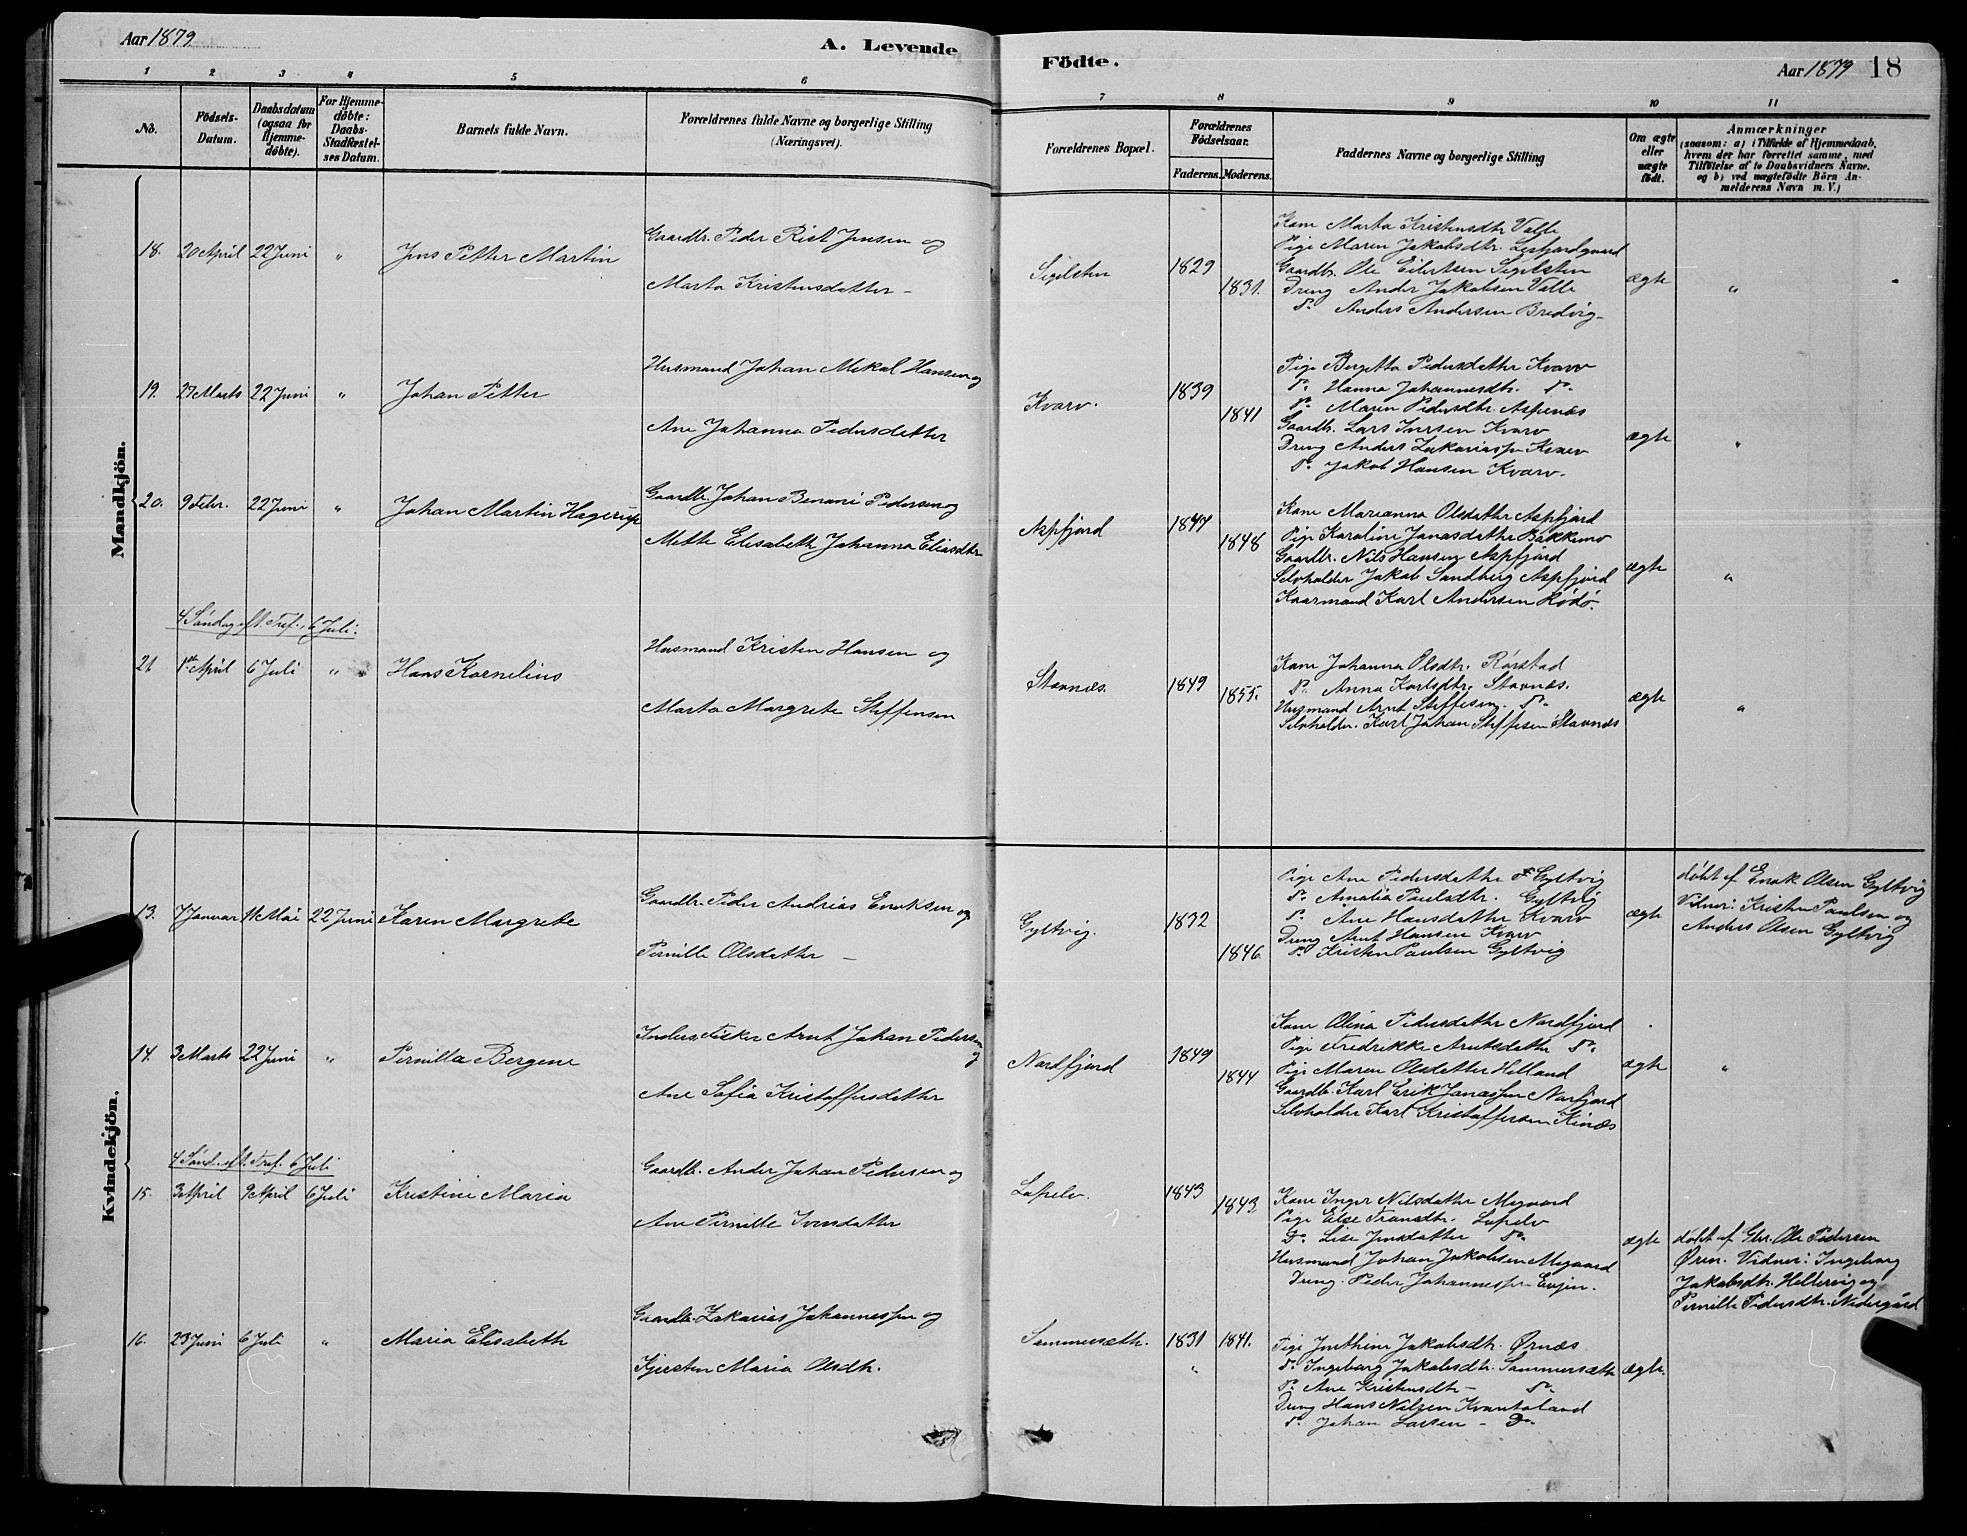 Aar 1879
A. Levende
Födte.
Aar 1879 18
1 2 3 4 5 6 7 8 9 10 11
No.
Födsels-
Datum.
Daabsdatum
(ogsaa for
Hjemme-
döbte).
For Hjemme-
döbte:
Daabs-
Stadfæstel-
ses Datum.
Barnets fulde Navn.
Forældrenes fulde Navne og borgerlige Stilling
(Næringsvei).
Forældrenes Bopæl.
Forældrenes
Födselsaar.
Faderens. Moderens.
Faddernes Navne og borgerlige Stilling
Om ægte
eller
uægte
födt.
Anmærkninger
(saasom: a) i Tilfælde af Hjemmedaab,
hvem der har forrettet samme, med
Tilföielse af to Daabsvidners Navne.
og b) ved uægtefödte Börn An-
melderens Navn m. V.)
Mandkjön.
18. 20 April 22 Juni " Jens Petter Martin
Gaardbr. Peder Rist Jensen og
Marta Kristensdatter -
Sigilsten 1829 1831.
Kone Marta Kristensdtr Valle
Pige Maren Jakobsdtr.
Gaardbr. Ole Eilertsen Sigilsten
Dreng Ander Jakobsen Valle
Do. Anders Andersen Bredvig-
ægte "
19. 27 Marts 22 Juni " Johan Petter
Husmand Johan Mekal Hansen og
Ane Johanna Pedersdatter
Kvarv. 1839 1841
Pige Bergetta Pedersdatter Kvarv
Do. Hanna Johannesdtr. Do.
Do. Maren Pedersdtr. Aspenæs
Gaardbr. Lars Iversen Kvarv
Dreng Anders Zakariassen Kvarv
Do. Jakob Hansen Kvarv.
ægte "
20. 9 Febr. 22 Juni " Johan Martin Hagerup
Gaardbr. Johan Benoni Pedersen og
Mette Elisabeth Johanna Eliasdtr
Aspfjord 1847 1848
Kone Marianna Olsdatter Aspfjord
Pige Karoline Jonasdatter Bakkemo
Gaardbr. Nils Hansen Aspfjord
Selvholder Jakob Sandberg Aspfjord
Kaarmand Karl Andersen Rødø.
ægte "
4 Søndag eft. Tref. 6 Juli.
21 1ste April 6 Juli " Hans Kornelius
Husmand Kristen Hansen og
Marta Margrete Steffensen
Stavnæs. 1849 1855.
Kone Johanna Olsdtr. Rørstad
Do. Anna Karlsdtr. Stavnæs.
Husmand Arnt Steffesen. Do.
Selvholder. Karl Johan Steffesen Stavnæs
ægte "
Kvindekjön.
13. 7 Januar 11 Mai 22 Juni Karen Margrete
Gaardbr. Peder Andreas Enoksen og
Pernille Olsdatter -
Gyltvig. 1832 1846.
Pige Ane Pedersdatter Gyltvig
Do. Amalia Paulsdtr. Gyltvig
Do. Ane Hansdatter Kvarv
Dreng Arnt Hansen Kvarv
Do. Kristen Paulsen Gyltvig
ægte
døbt af Enok Olsen Gyltvig
Vidner: Kristen Paulsen og
Anders Olsen Gyltvig
14. 3 Marts 22 Juni " Pernilla Bergene
Inders. Fisker Arnt Johan Pedersen og
Ane Sofia Kristoffersdatter
Nordfjord 1849 1844
Kone Olina Pedersdatter Nordfjord
Pige Fredrikke Arntsdatter Do.
Pige Maren Olsdatter Helland
Gaardb. Karl Erik Jonassen Norfjord
Selvholder Karl Kristoffersen Kinæs
ægte "
4 Sønd. eft. Tref. 6 Juli
15. 3 April 9 April 6 Juli Kristine Maria
Gaardbr. Ander Johan Pedersen og
Ane Pernille Iversdatter
Lapelv. 1843 1843
Kone Inger Nilsdatter Megaard
Pige Else Fransdtr. Lapelv
Do. Lise Jensdatter Do.
Husmand Johan Jakobsen Megaard
Dreng. Peder Johannessen Evjen.
ægte
døbt af Gbr. Ole Pedersen
Øren. Vidner: Ingeborg
Jakobsdtr. Hellervig og
Pernille Pedersdtr. Nedergård
16. 23 Juni 6 Juli " Maria Elisabeth
Gaardbr. Zakarias Johannessen og
Kjersten Maria Olsdtr.
Sommersæth. 1831 1841.
"
Pige Jenthine Jakobsdtr. Ørnæs
Do. Ingeborg Jakobsdtr. Sommersæth
Do. Ane Kristensdtr - Do.
Dreng Hans Nilsen Kvantoland
Do. Johan Larsen - Do
ægte.